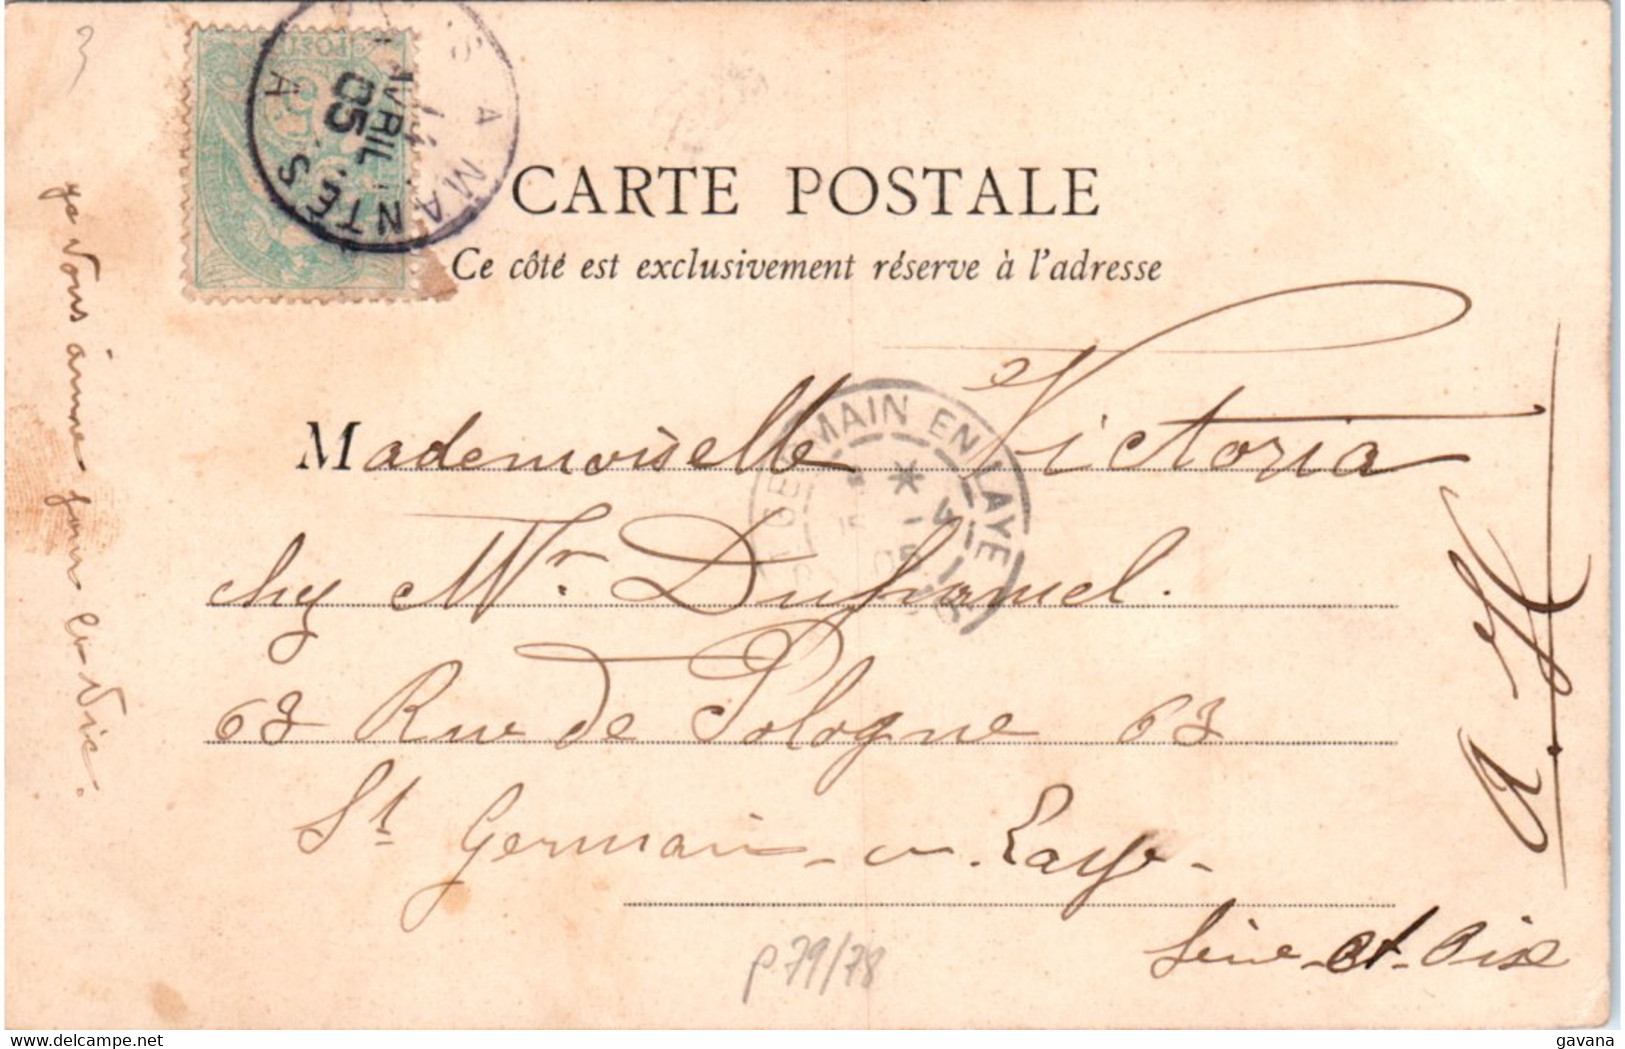 CARTE POSTALE
Ce côté est exclusivement réserve à l'adresse
Mademoiselle Victoria
chez Mr. Duhamel.
63 Rue de Pologne 63
St Germain-en-Laye-
Seine-et-Oise
A. H
ge vous aime pour la vie.
p 79/78
A MANTES
AVRIL
05
GERMAIN EN LAYE
3
gavana